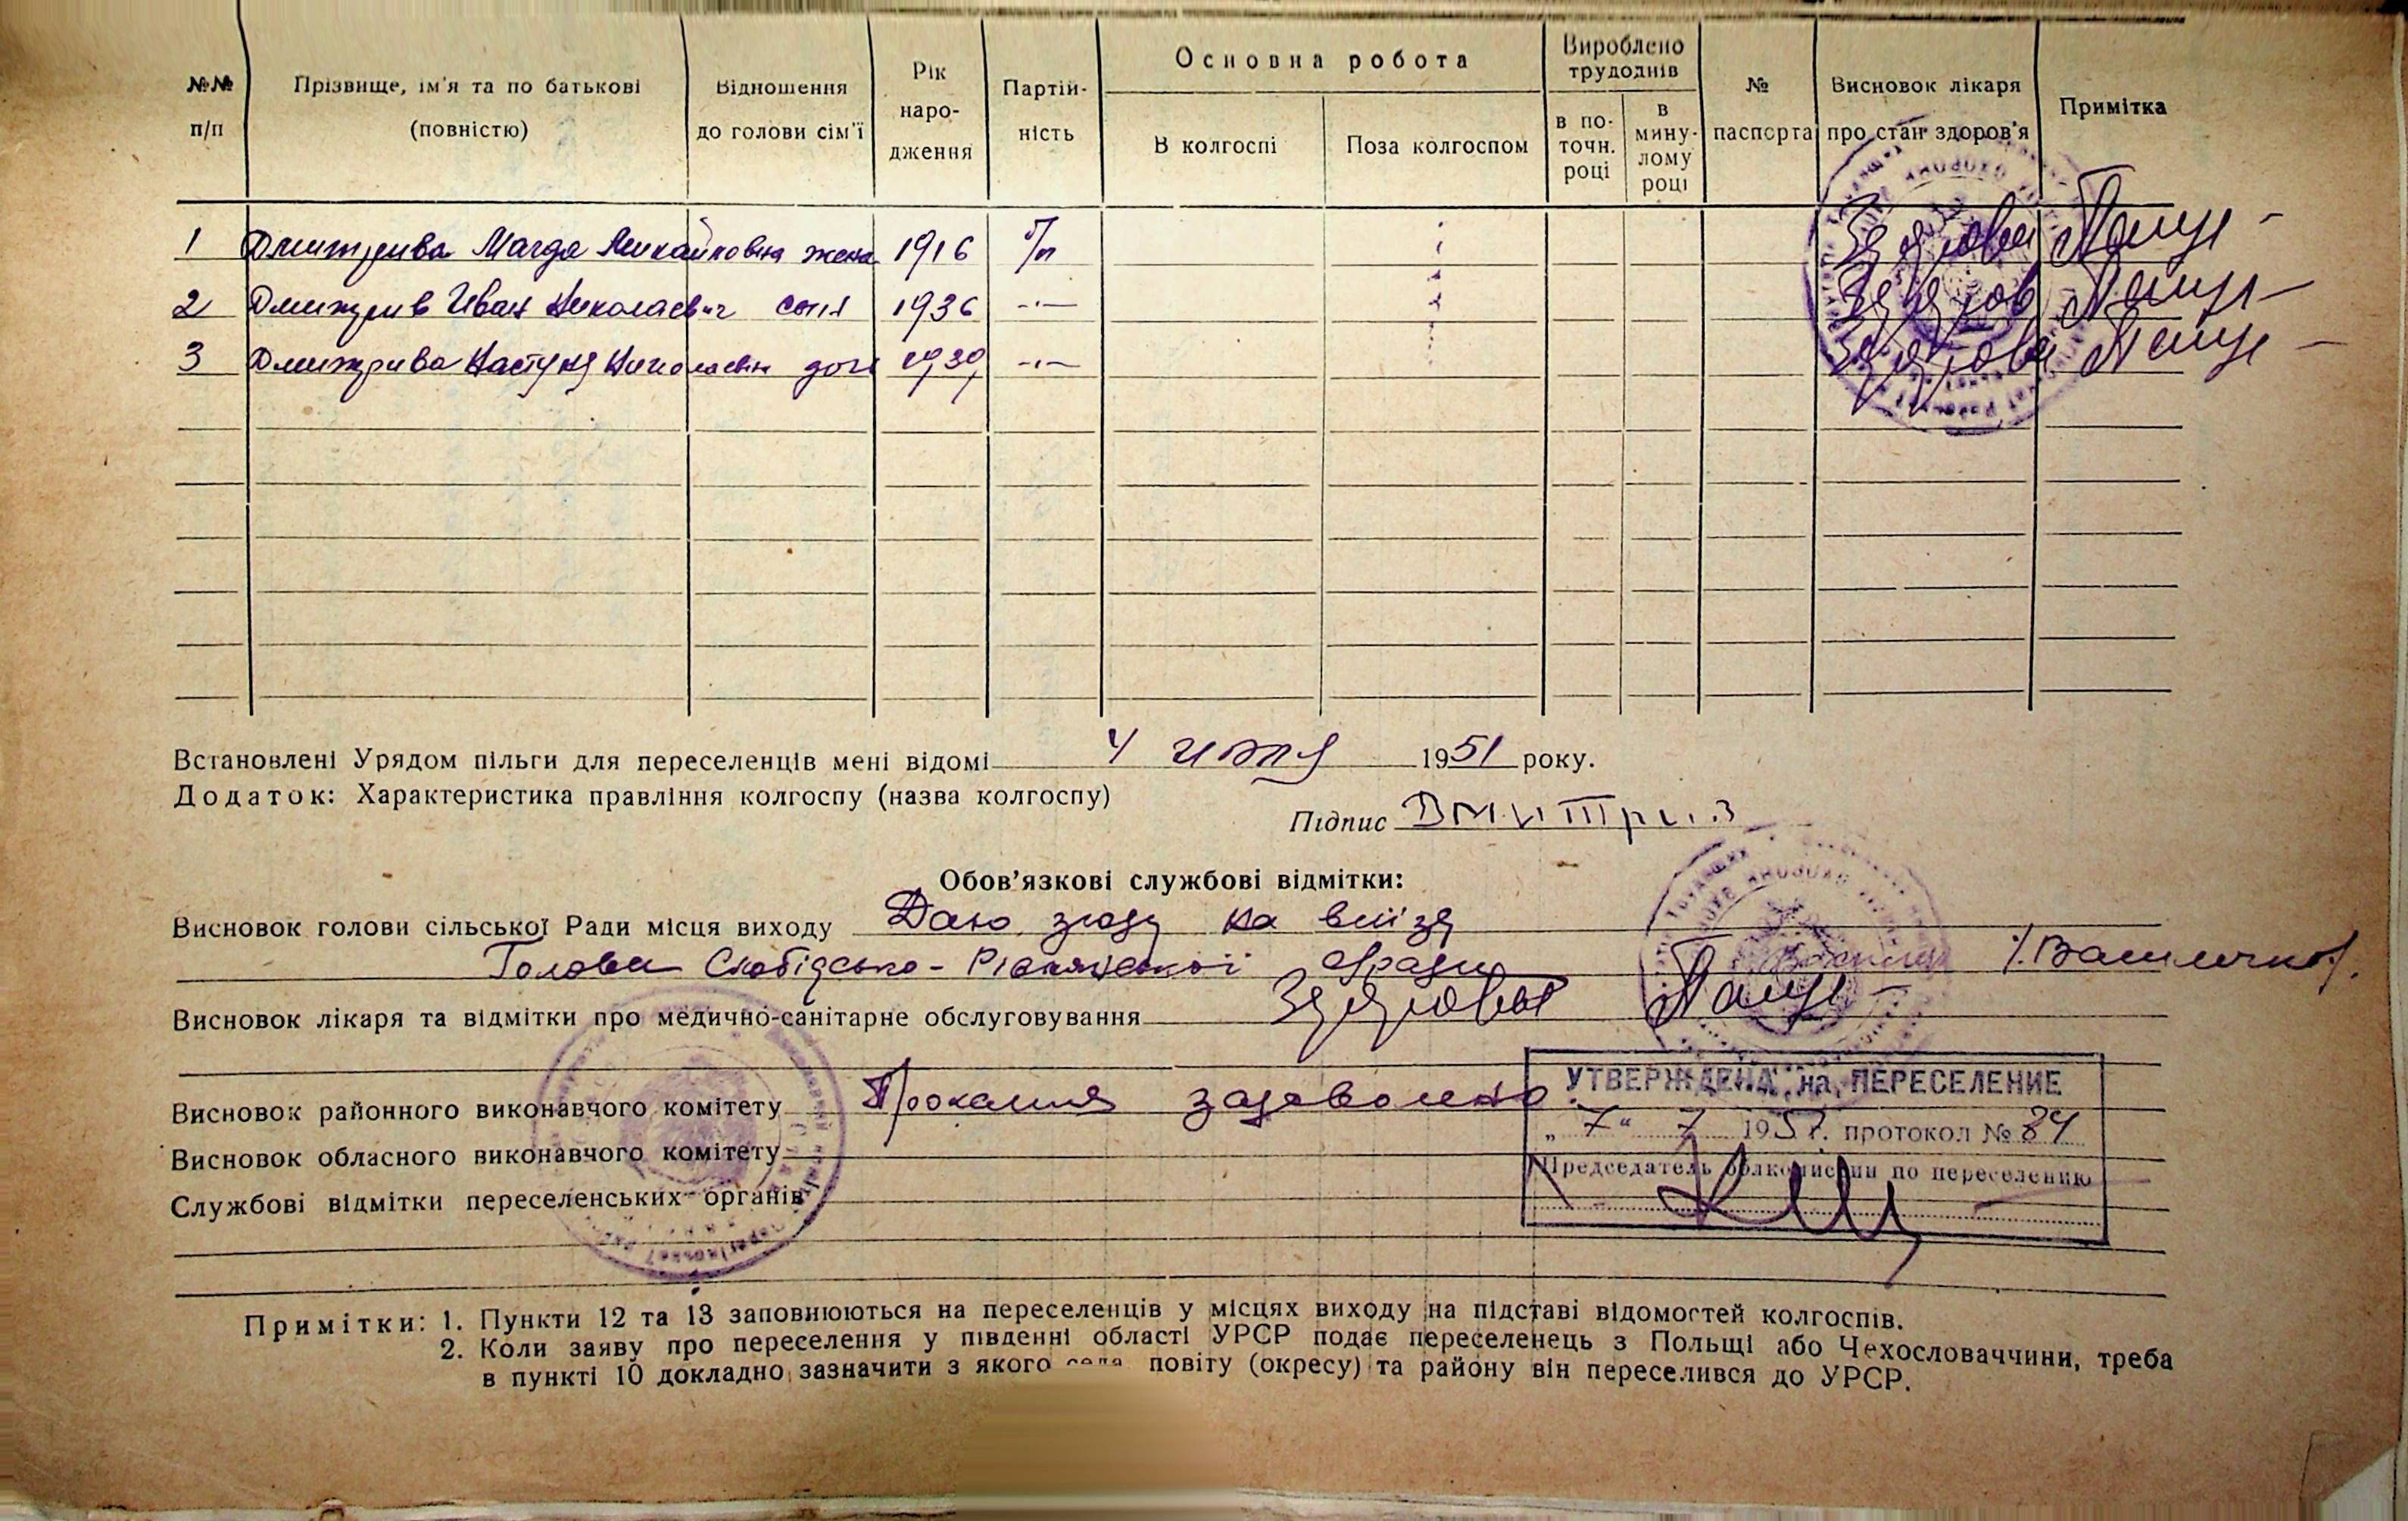 №№ п/п | Прізвище, ім'я та по батькові (повністю) | Відношення до голови сім'ї | Рік народження | Партійність | Основна робота | В колгоспі | Поза колгоспом | Вироблено трудоднів | в поточн. році | в минулому році | № паспорта | Висновок лікаря про стан здоров'я | Примітка
1 Дмитрива Магда Михайловна жена 1916 б/п Здорова
2 Дмитрив Иван Николаевич сын 1936 -"- Здоров
3 Дмитрива Настуня Николаевн доч 1939 -"- Здорова
Встановлені Урядом пільги для переселенців мені відомі 4 июля 1951 року.
Додаток: Характеристика правління колгоспу (назва колгоспу)
Підпис Дмитрів
Обов'язкові службові відмітки:
Висновок голови сільської Ради місця виходу Даю згоду на виїзд
Голова Слобідсько-Рівнянської с/ради /Василичко/.
Висновок лікаря та відмітки про медично-санітарне обслуговування Здорові
Висновок районного виконавчого комітету Прохання задоволено.
УТВЕРЖДЕНА на ПЕРЕСЕЛЕНИЕ
„7" 7 1951. протокол № 84
Висновок обласного виконавчого комітету
Председатель облкомиссии по переселению
Службові відмітки переселенських органів
Примітки: 1. Пункти 12 та 13 заповнюються на переселенців у місцях виходу на підставі відомостей колгоспів.
2. Коли заяву про переселення у південні області УРСР подає переселенець з Польщі або Чехословаччини, треба
в пункті 10 докладно зазначити з якого села, повіту (окресу) та району він переселився до УРСР.